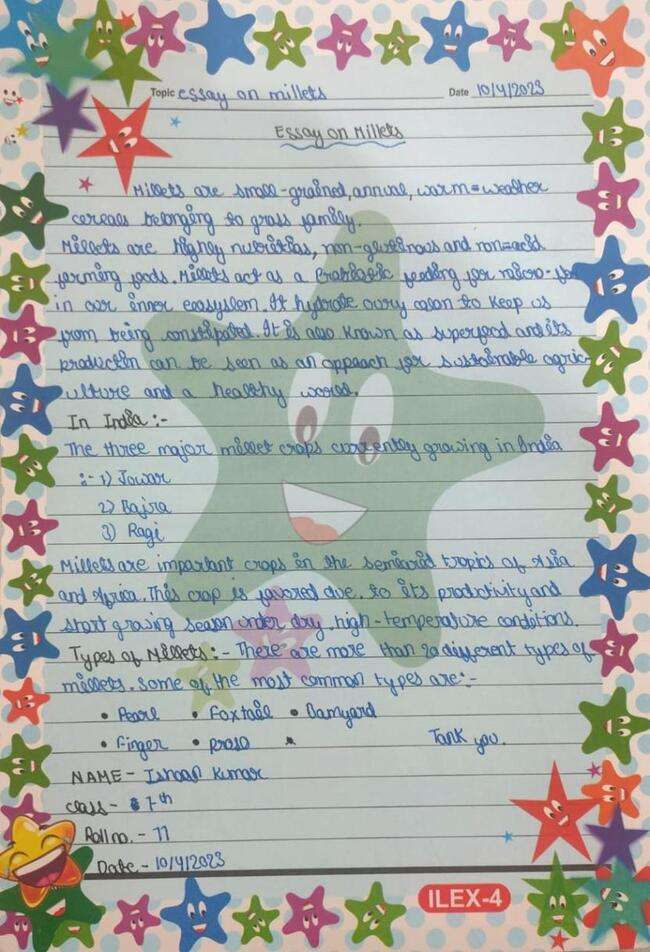 Topic essay on millets Date 10/4/2023
Essay on Millets
Millets are small-grained, annual, warm=weather
cereals belonging to grass family.
Millets are highly nutritias, non-glutinous and non=acid
forming foods. Millets act as a probiotic feeding for micro-
in our inner ecosystem. It hydrate ourry colon to keep us
from being constipated. It is also known as superfood and its
production can be seen as an appeach for sustainable agric-
ulture and a healthy world.
In India :-
The three major millet crops currently growing in India
:- 1) Jowar
2) Bajra
3) Ragi
Millets are important crops in the semiarid tropics of Asia
and Africa. This crop is favored due. to its productivity and
start growing season under dry, high-temperature conditions.
Types of Millets:- There are more than 20 different types of
millets. some of the most common types are:-
• Pearl • Foxtail • Barnyard
• finger • proso •
Tank you.
NAME - Ishaan Kumar
class - 7th
Roll no. - 11
Date - 10/4/2023
ILEX-4